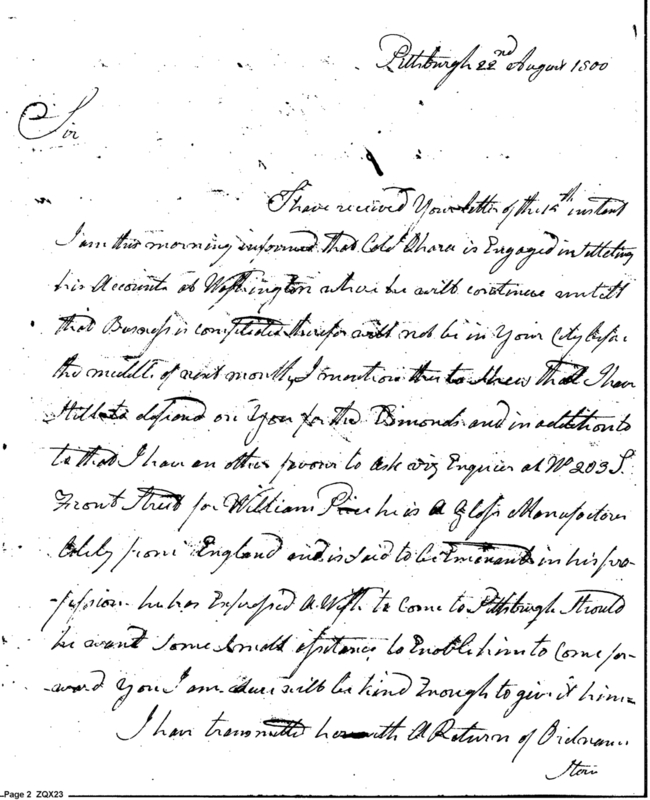 Pittsburgh 22nd August 1800
Sir
I have received Your letter of the 12th instant
I am this morning informed that Colo. Ohara is Engaged in settleing
his Accounts at Washington where he will continue untill
that Business is compleated therefor will not be in Your City befor
the middle of next month, I mention this to shew that I have
still to depend on You for the and in addition to
to that I have an other favour to ask viz Enquier at No 203 S.
Front Street for William Price he is a Glass Manufactorer
lately from England and is said to be Eminent in his pro-
-fession he has Expressed A Wish to Come to Pittsburgh Should
he want Some Small assistance to Enable him to Come for-
ward You I am sure will be kind Enough to give it him =
I have transmitted herewith A Return of Ordnance
Stores
Page 2 ZQX23